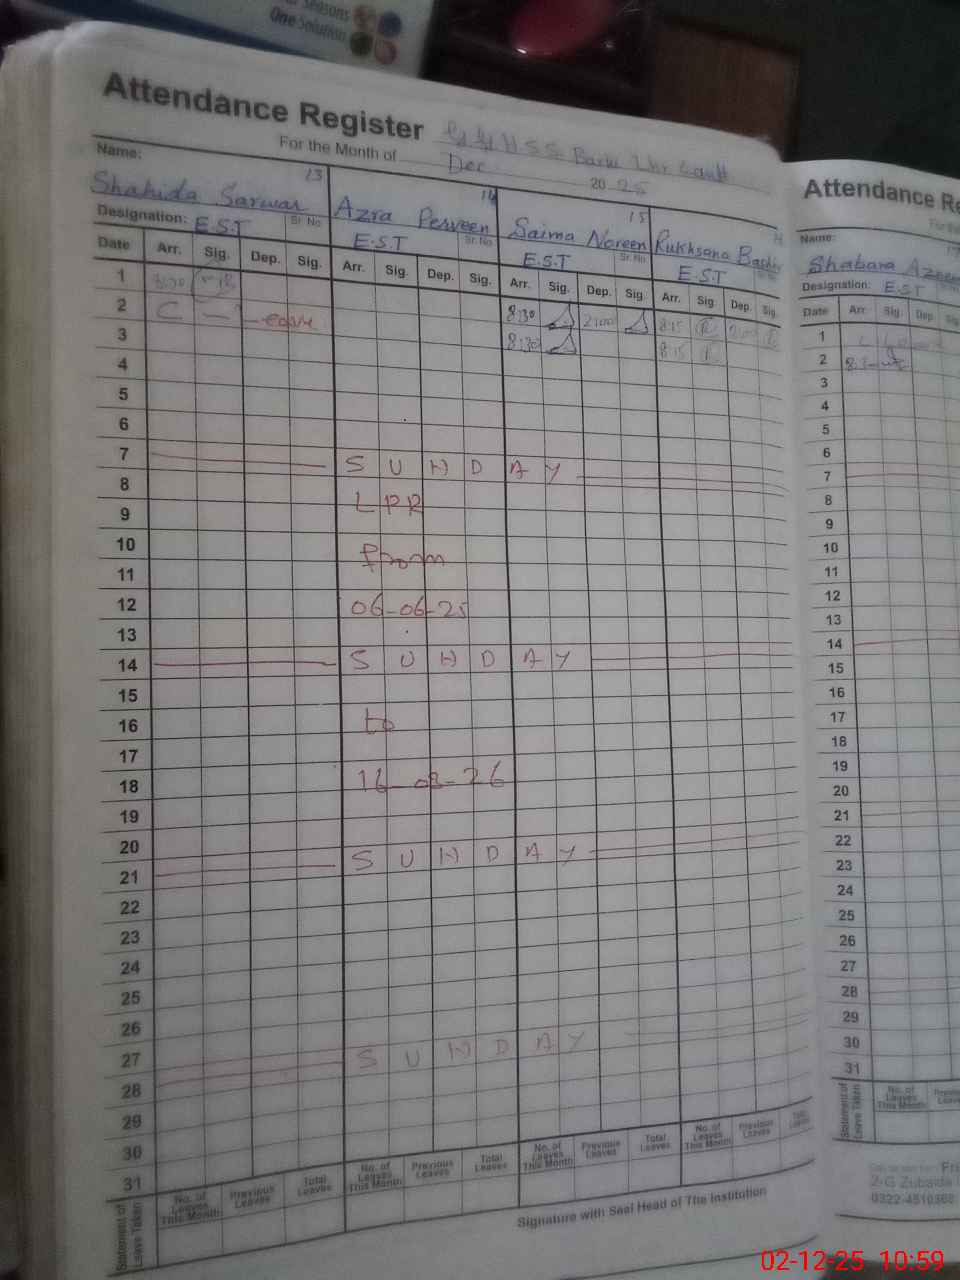 Seasons
One Solution
Attendance Register
For the Month of Dec 2025
Name: 13 14 15
Shahida Sarwar Azra Perveen Saima Noreen Rukhsana Bashir
Designation: E.S.T Sr. No E.S.T Sr. No E.S.T Sr. No E.S.T
Date Arr. Sig. Dep. Sig. Arr. Sig. Dep. Sig. Arr. Sig. Dep. Sig. Arr. Sig. Dep. Sig.
1 8:30 8:30 2:00 8:15 2:00
2 C - Leave 8:30 8:15
3
4
5
6
7 S U N D A Y
8 LPR
9
10 from
11
12 06-06-25
13
14 S U N D A Y
15
16 to
17
18 16-08-26
19
20
21 S U N D A Y
22
23
24
25
26
27
28 S U N D A Y
29
30
31
Statement of Leave Taken
No. of Leaves This Month Previous Leaves Total Leaves No. of Leaves This Month Previous Leaves Total Leaves No. of Leaves This Month Previous Leaves Total Leaves No. of Leaves This Month Previous Leaves Total Leaves
Signature with Seal Head of The Institution
Attendance Re
Name:
Shabana Azeem
Designation: E.S.T
Date Arr. Sig. Dep. Sig.
1
2
3
4
5
6
7
8
9
10
11
12
13
14
15
16
17
18
19
20
21
22
23
24
25
26
27
28
29
30
31
Statement of Leave Taken
No. of Leaves This Month Previous Leaves
2-G Zubaida
0322-4510368
02-12-25 10:59